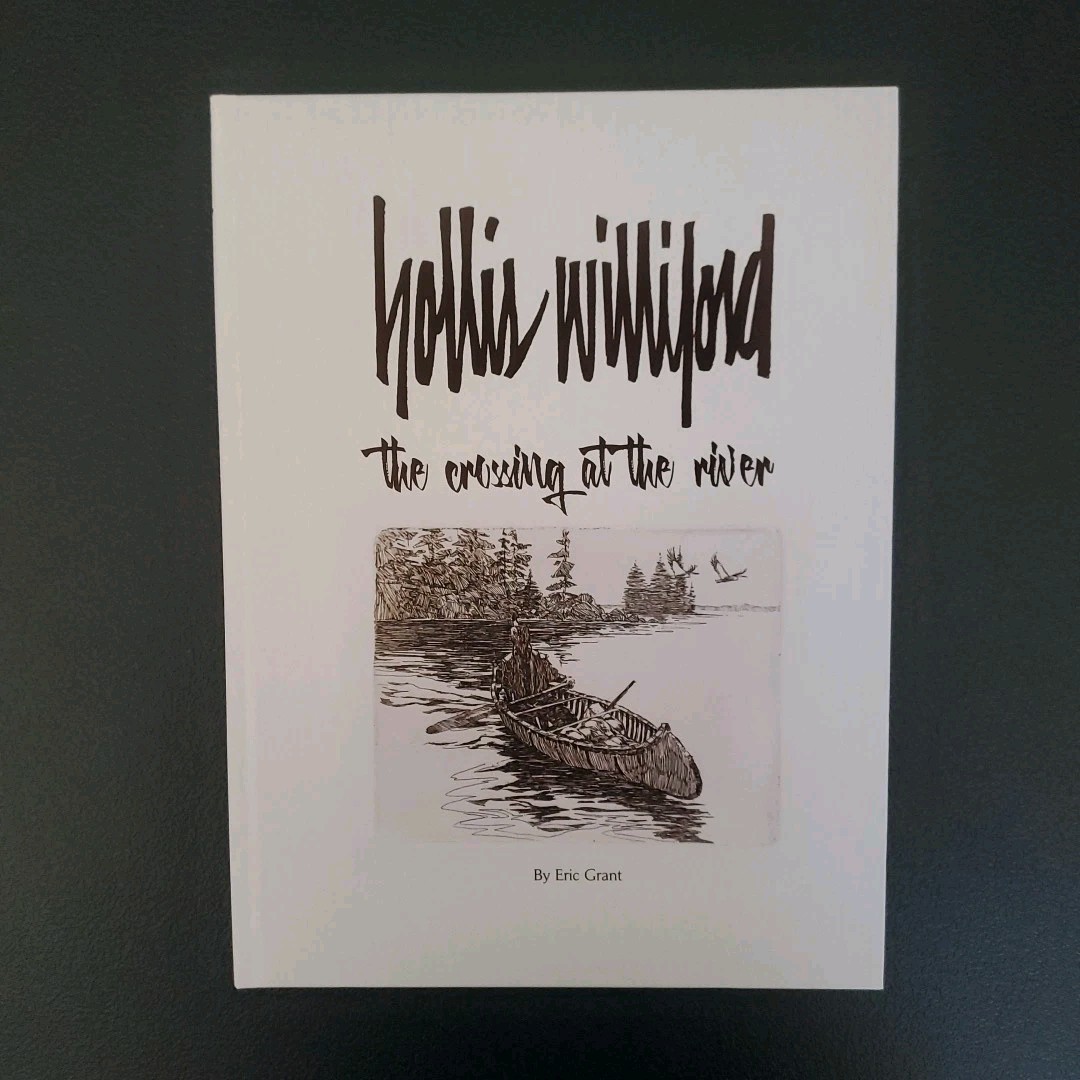 hollis williford
the crossing at the river
By Eric Grant